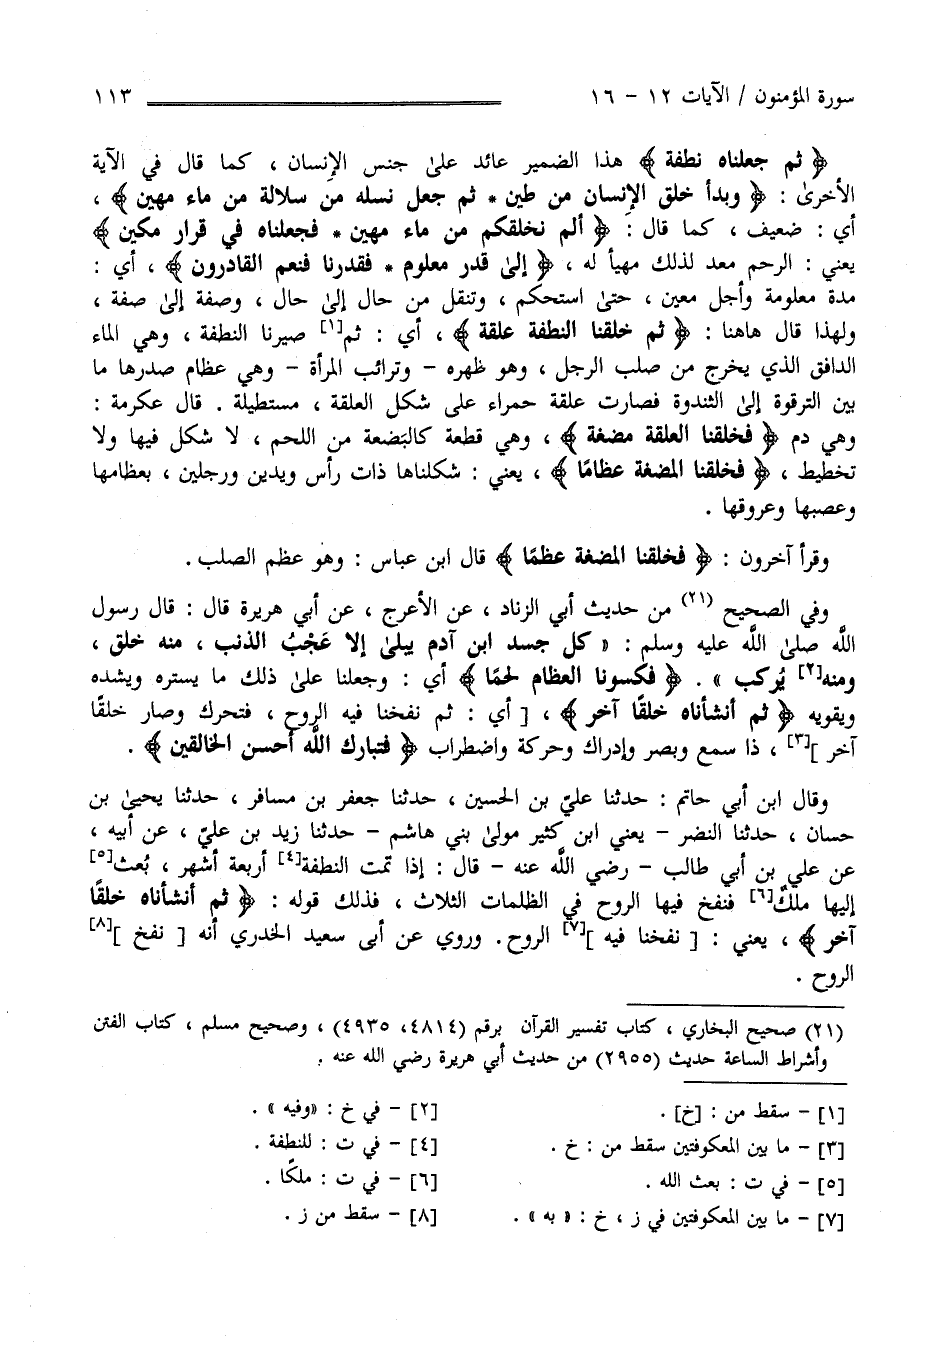 سورة المؤمنون / الآيات ١٢ - ١٦ ١١٣
﴿ ثم جعلناه نطفة ﴾ هذا الضمير عائد علىٰ جنس الإنسان ، كما قال في الآية
الأخرىٰ : ﴿ وبدأ خلق الإنسان من طين * ثم جعل نسله من سلالة من ماء مهين ﴾ ،
أي : ضعيف ، كما قال : ﴿ ألم نخلقكم من ماء مهين * فجعلناه في قرار مكين ﴾
يعني : الرحم معد لذلك مهيأ له ، ﴿ إلىٰ قدر معلوم * فقدرنا فنعم القادرون ﴾ ، أي :
مدة معلومة وأجل معين ، حتىٰ استحكم ، وتنقل من حال إلىٰ حال ، وصفة إلىٰ صفة ،
ولهذا قال هاهنا : ﴿ ثم خلقنا النطفة علقة ﴾ ، أي : ثم[١] صيرنا النطفة ، وهي الماء
الدافق الذي يخرج من صلب الرجل ، وهو ظهره - وترائب المرأة - وهي عظام صدرها ما
بين الترقوة إلىٰ الثندوة فصارت علقة حمراء على شكل العلقة ، مستطيلة . قال عكرمة :
وهي دم ﴿ فخلقنا العلقة مضغة ﴾ ، وهي قطعة كالبَضعة من اللحم ، لا شكل فيها ولا
تخطيط ، ﴿ فخلقنا المضغة عظامًا ﴾ ، يعني : شكلناها ذات رأس ويدين ورجلين ، بعظامها
وعصبها وعروقها .
وقرأ آخرون : ﴿ فخلقنا المضغة عظمًا ﴾ قال ابن عباس : وهو عظم الصلب .
وفي الصحيح (٢١) من حديث أبي الزناد ، عن الأعرج ، عن أبي هريرة قال : قال رسول
اللَّه صلىٰ اللَّه عليه وسلم : « كل جسد ابن آدم يبلىٰ إلا عَجْبُ الذنب ، منه خلق ،
ومنه[٢] يُركب » . ﴿ فكسونا العظام لحمًا ﴾ أي : وجعلنا علىٰ ذلك ما يستره ويشده
ويقويه ﴿ ثم أنشأناه خلقًا آخر ﴾ ، [ أي : ثم نفخنا فيه الروح ، فتحرك وصار خلقًا
آخر ][٣] ، ذا سمع وبصر وإدراك وحركة واضطراب ﴿ فتبارك اللَّه أحسن الخالقين ﴾ .
وقال ابن أبي حاتم : حدثنا عليّ بن الحسين ، حدثنا جعفر بن مسافر ، حدثنا يحيىٰ بن
حسان ، حدثنا النضر - يعني ابن كثير مولىٰ بني هاشم - حدثنا زيد بن عليّ ، عن أبيه ،
عن علي بن أبي طالب - رضي اللَّه عنه - قال : إذا تمت النطفة[٤] أربعة أشهر ، بُعث[٥]
إليها ملكٌ[٦] فنفخ فيها الروح في الظلمات الثلاث ، فذلك قوله : ﴿ ثم أنشأناه خلقًا
آخر ﴾ ، يعني : [ نفخنا فيه ][٧] الروح. وروي عن أبى سعيد الخدري أنه [ نفخ ][٨]
الروح .
(٢١) صحيح البخاري ، كتاب تفسير القرآن برقم (٤٨١٤، ٤٩٣٥) ، وصحيح مسلم ، كتاب الفتن
وأشراط الساعة حديث (٢٩٥٥) من حديث أبي هريرة رضي الله عنه .
[١] - سقط من : [خ] . [٢] - في خ : «وفيه» .
[٣] - ما بين المعكوفتين سقط من : خ . [٤] - في ت : للنطفة .
[٥] - في ت : بعث الله . [٦] - في ت : ملكًا .
[٧] - ما بين المعكوفتين في ز ، خ : « به » . [٨] - سقط من ز .